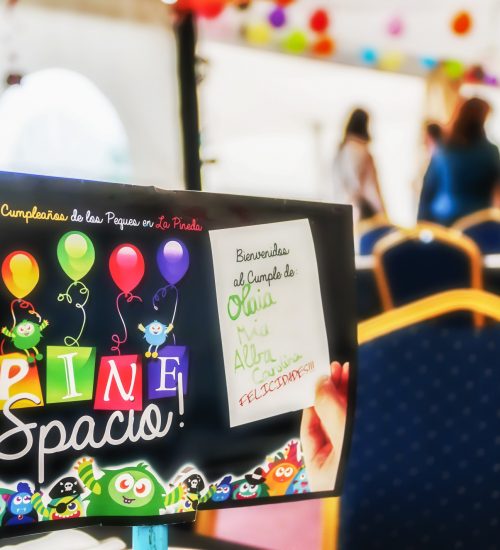 Cumpleaños de los Peques en La Pineda
PINE
Spacio!
Bienvenidos
al Cumple de:
Olaia
Mía
Alba
Carolina
FELICIDADES!!!